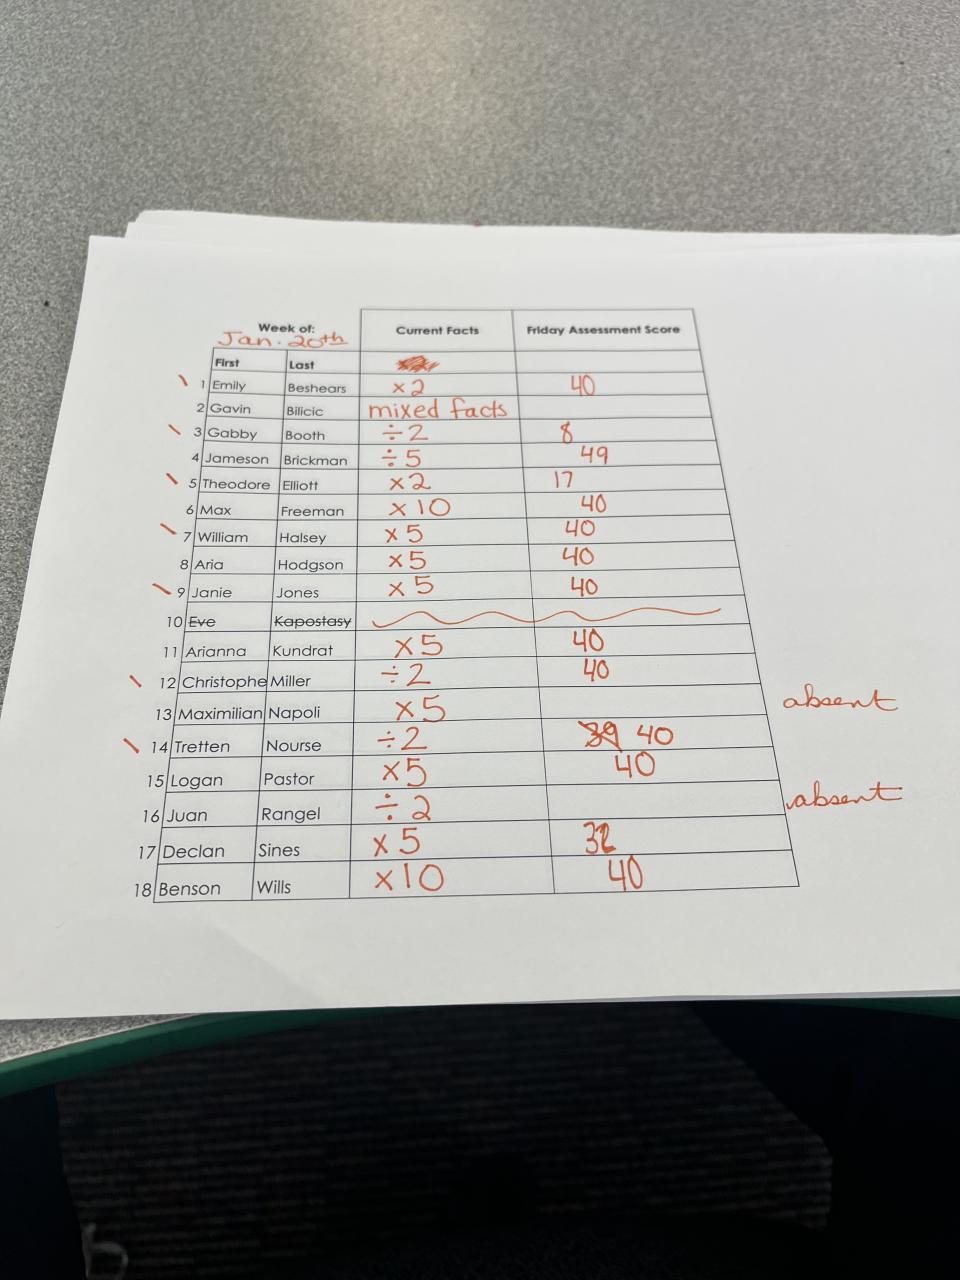 Week of: Current Facts Friday Assessment Score
Jan. 20th
First Last
1 Emily Beshears x2 40
2 Gavin Bilicic mixed facts
3 Gabby Booth ÷2 8
4 Jameson Brickman ÷5 49
5 Theodore Elliott x2 17
6 Max Freeman x10 40
7 William Halsey x5 40
8 Aria Hodgson x5 40
9 Janie Jones x5 40
10 Eve Kapostasy
11 Arianna Kundrat x5 40
12 Christophe Miller ÷2 40
13 Maximilian Napoli x5 absent
14 Tretten Nourse ÷2 39 40
15 Logan Pastor x5 40
16 Juan Rangel ÷2 absent
17 Declan Sines x5
18 Benson Wills x10 40